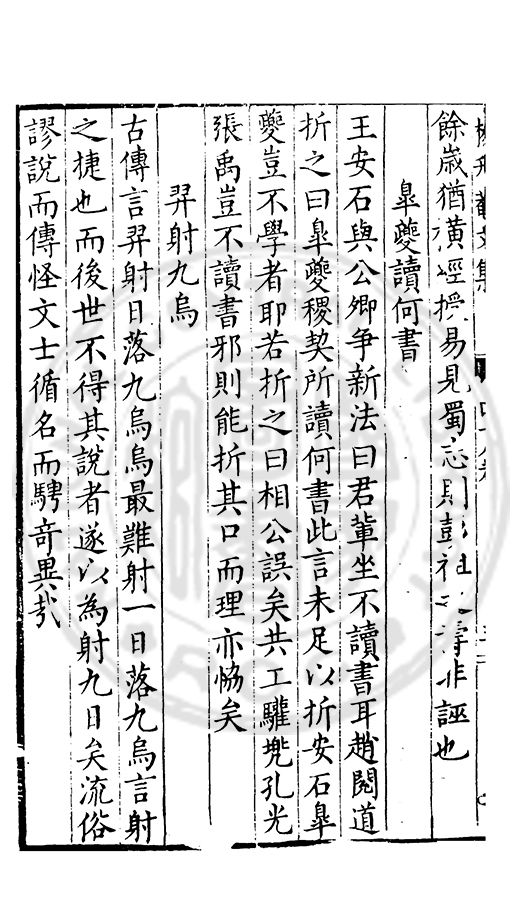 餘歲猶橫經授易見蜀志則彭祖之壽非誣也
皐夔讀何書
王安石與公卿争新法曰君軰坐不讀書耳趙閱道
折之曰皐夔稷契所讀何書此言未足以折安石皐
夔豈不學者耶若折之曰相公誤矣共工驩兠孔光
張禹豈不讀書邪則能折其口而理亦恊矣
羿射九烏
古傳言羿射日落九烏烏最難射一日落九烏言射
之捷也而後世不得其說者遂以為射九日矣流俗
謬說而傳怪文士循名而騁竒異哉